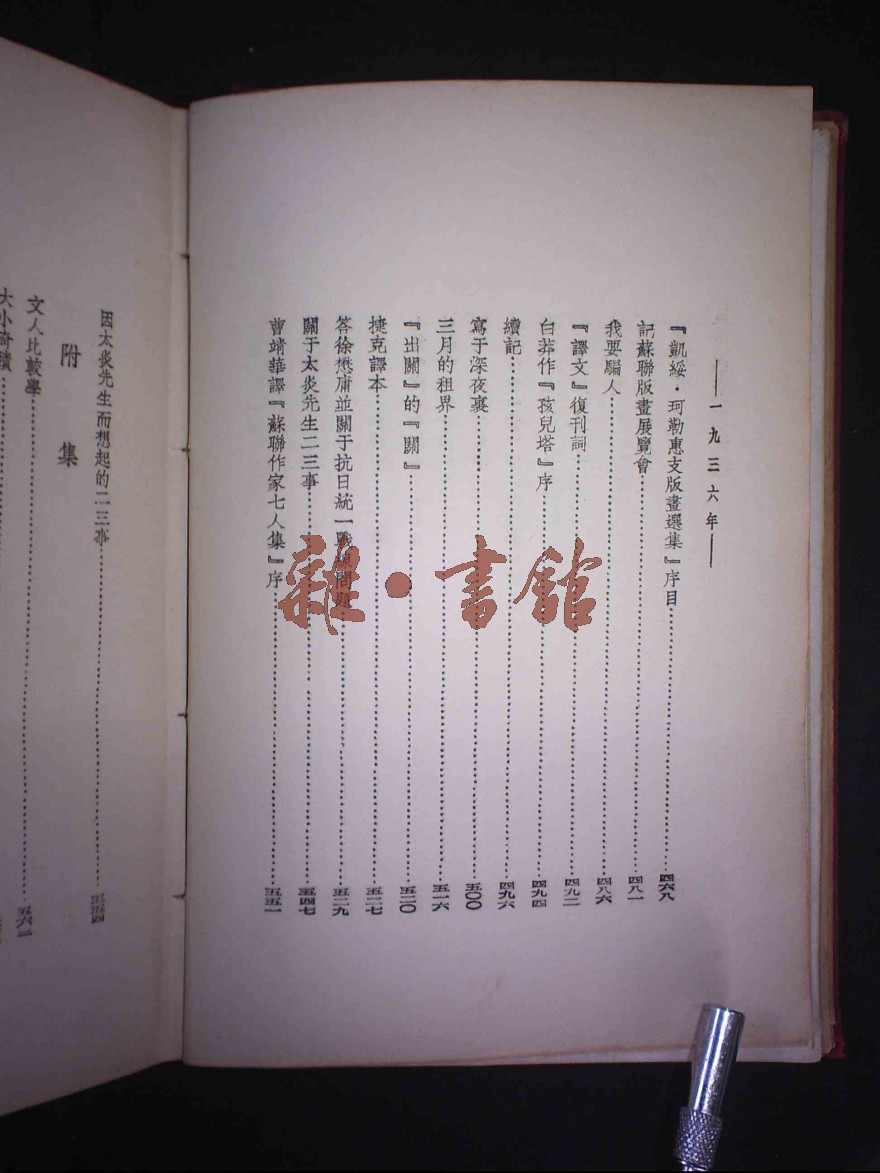 ——一九三六年——
『凱綏·珂勒惠支版畫選集』序目……四六八
記蘇聯版畫展覽會……四八一
我要騙人……四八六
『譯文』復刊詞……四九二
白莽作『孩兒塔』序……四九四
續記……四九六
寫于深夜裏……五〇〇
三月的租界……五一六
『出關』的『關』……五二〇
捷克譯本……五二七
答徐懋庸並關于抗日統一戰線問題……五二九
關于太炎先生二三事……五四七
曹靖華譯『蘇聯作家七人集』序……五五一
因太炎先生而想起的二三事……五五四
附集
文人比較學……五六一
大小奇蹟……
雜·書館